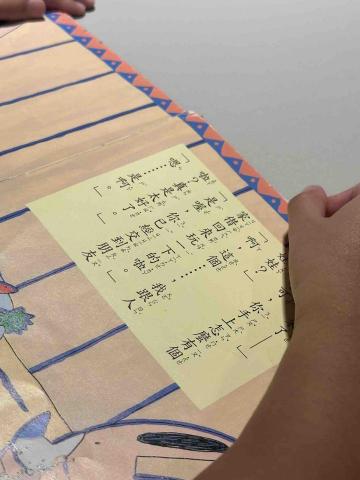 了——」
娃？你手上怎麼有個
「啊，這個……我跟人
家借回來玩一下的啦。」
「是喔，你已經交到朋友
啦？真是太好了。」
「嗯……是啊。」